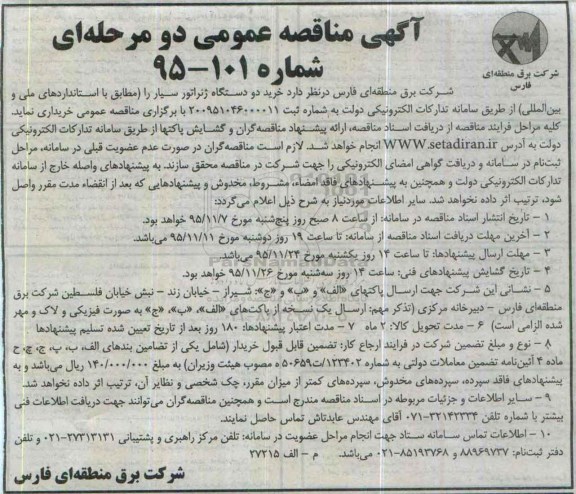 آگهی مناقصه عمومی دو مرحله‌ای
شماره ۱۰۱-۹۵
شرکت برق منطقه‌ای
فارس
شرکت برق منطقه‌ای فارس درنظر دارد خرید دو دستگاه ژنراتور سیار را (مطابق با استانداردهای ملی و
بین‌المللی) از طریق سامانه تدارکات الکترونیکی دولت به شماره ثبت ۲۰۰۹۵۱۰۴۶۰۰۰۰۱۱ با برگزاری مناقصه عمومی خریداری نماید.
کلیه مراحل فرایند مناقصه از دریافت اسناد مناقصه، ارائه پیشنهاد مناقصه‌گران و گشایش پاکتها از طریق سامانه تدارکات الکترونیکی
دولت به آدرس WWW.setadiran.ir انجام خواهد شد. لازم است مناقصه‌گران در صورت عدم عضویت قبلی در سامانه، مراحل
ثبت‌نام در سامانه و دریافت گواهی امضای الکترونیکی را جهت شرکت در مناقصه محقق سازند. به پیشنهادهای واصله خارج از سامانه
تدارکات الکترونیکی دولت و همچنین به پیشنهادهای فاقد امضاء، مشروط، مخدوش و پیشنهادهایی که بعد از انقضاء مدت مقرر واصل
شود، ترتیب اثر داده نخواهد شد. سایر اطلاعات موردنیاز به شرح ذیل اعلام می‌گردد:
۱ - تاریخ انتشار اسناد مناقصه در سامانه: از ساعت ۸ صبح روز پنج‌شنبه مورخ ۹۵/۱۱/۷ خواهد بود.
۲ - آخرین مهلت دریافت اسناد مناقصه از سامانه: تا ساعت ۱۹ روز دوشنبه مورخ ۹۵/۱۱/۱۱ می‌باشد.
۳ - مهلت ارسال پیشنهادها: تا ساعت ۱۴ روز یکشنبه مورخ ۹۵/۱۱/۲۴ می‌باشد.
۴ - تاریخ گشایش پیشنهادهای فنی: ساعت ۱۴ روز سه‌شنبه مورخ ۹۵/۱۱/۲۶ خواهد بود.
۵ - نشانی این شرکت جهت ارسال پاکتهای «الف» و «ب» و «ج»: شیراز - خیابان زند - نبش خیابان فلسطین شرکت برق
منطقه‌ای فارس - دبیرخانه مرکزی (تذکر مهم: ارسال یک نسخه از پاکت‌های «الف»، «ب»، «ج» به صورت فیزیکی و لاک و مهر
شده الزامی است) ۶ - مدت تحویل کالا: ۲ ماه ۷ - مدت اعتبار پیشنهادها: ۱۸۰ روز بعد از تاریخ تعیین شده تسلیم پیشنهادها
۸ - نوع و مبلغ تضمین شرکت در فرایند ارجاع کار: تضمین قابل قبول خریدار (شامل یکی از تضامین بندهای الف، ب، پ، ج، چ، ح
ماده ۴ آئین‌نامه تضمین معاملات دولتی به شماره ۱۲۳۴۰۲/ت۵۰۶۵۹ ه مصوب هیئت وزیران) به مبلغ ۱۴۰/۰۰۰/۰۰۰ ریال می‌باشد و به
پیشنهادهای فاقد سپرده، سپرده‌های مخدوش، سپرده‌های کمتر از میزان مقرر، چک شخصی و نظایر آن، ترتیب اثر داده نخواهد شد.
۹ - سایر اطلاعات و جزئیات مربوطه در اسناد مناقصه مندرج است و همچنین مناقصه‌گران می‌توانند جهت دریافت اطلاعات فنی
بیشتر با شماره تلفن ۳۲۱۴۲۳۳۴-۰۷۱ آقای مهندس عابدتاش تماس حاصل نمایند.
۱۰ - اطلاعات تماس سامانه ستاد جهت انجام مراحل عضویت در سامانه: تلفن مرکز راهبری و پشتیبانی ۲۷۳۱۳۱۳۱-۰۲۱ و تلفن
دفتر ثبت‌نام: ۸۸۹۶۹۷۳۷ و ۸۵۱۹۳۷۶۸-۰۲۱ می‌باشد. م - الف ۲۷۲۱۵
شرکت برق منطقه‌ای فارس